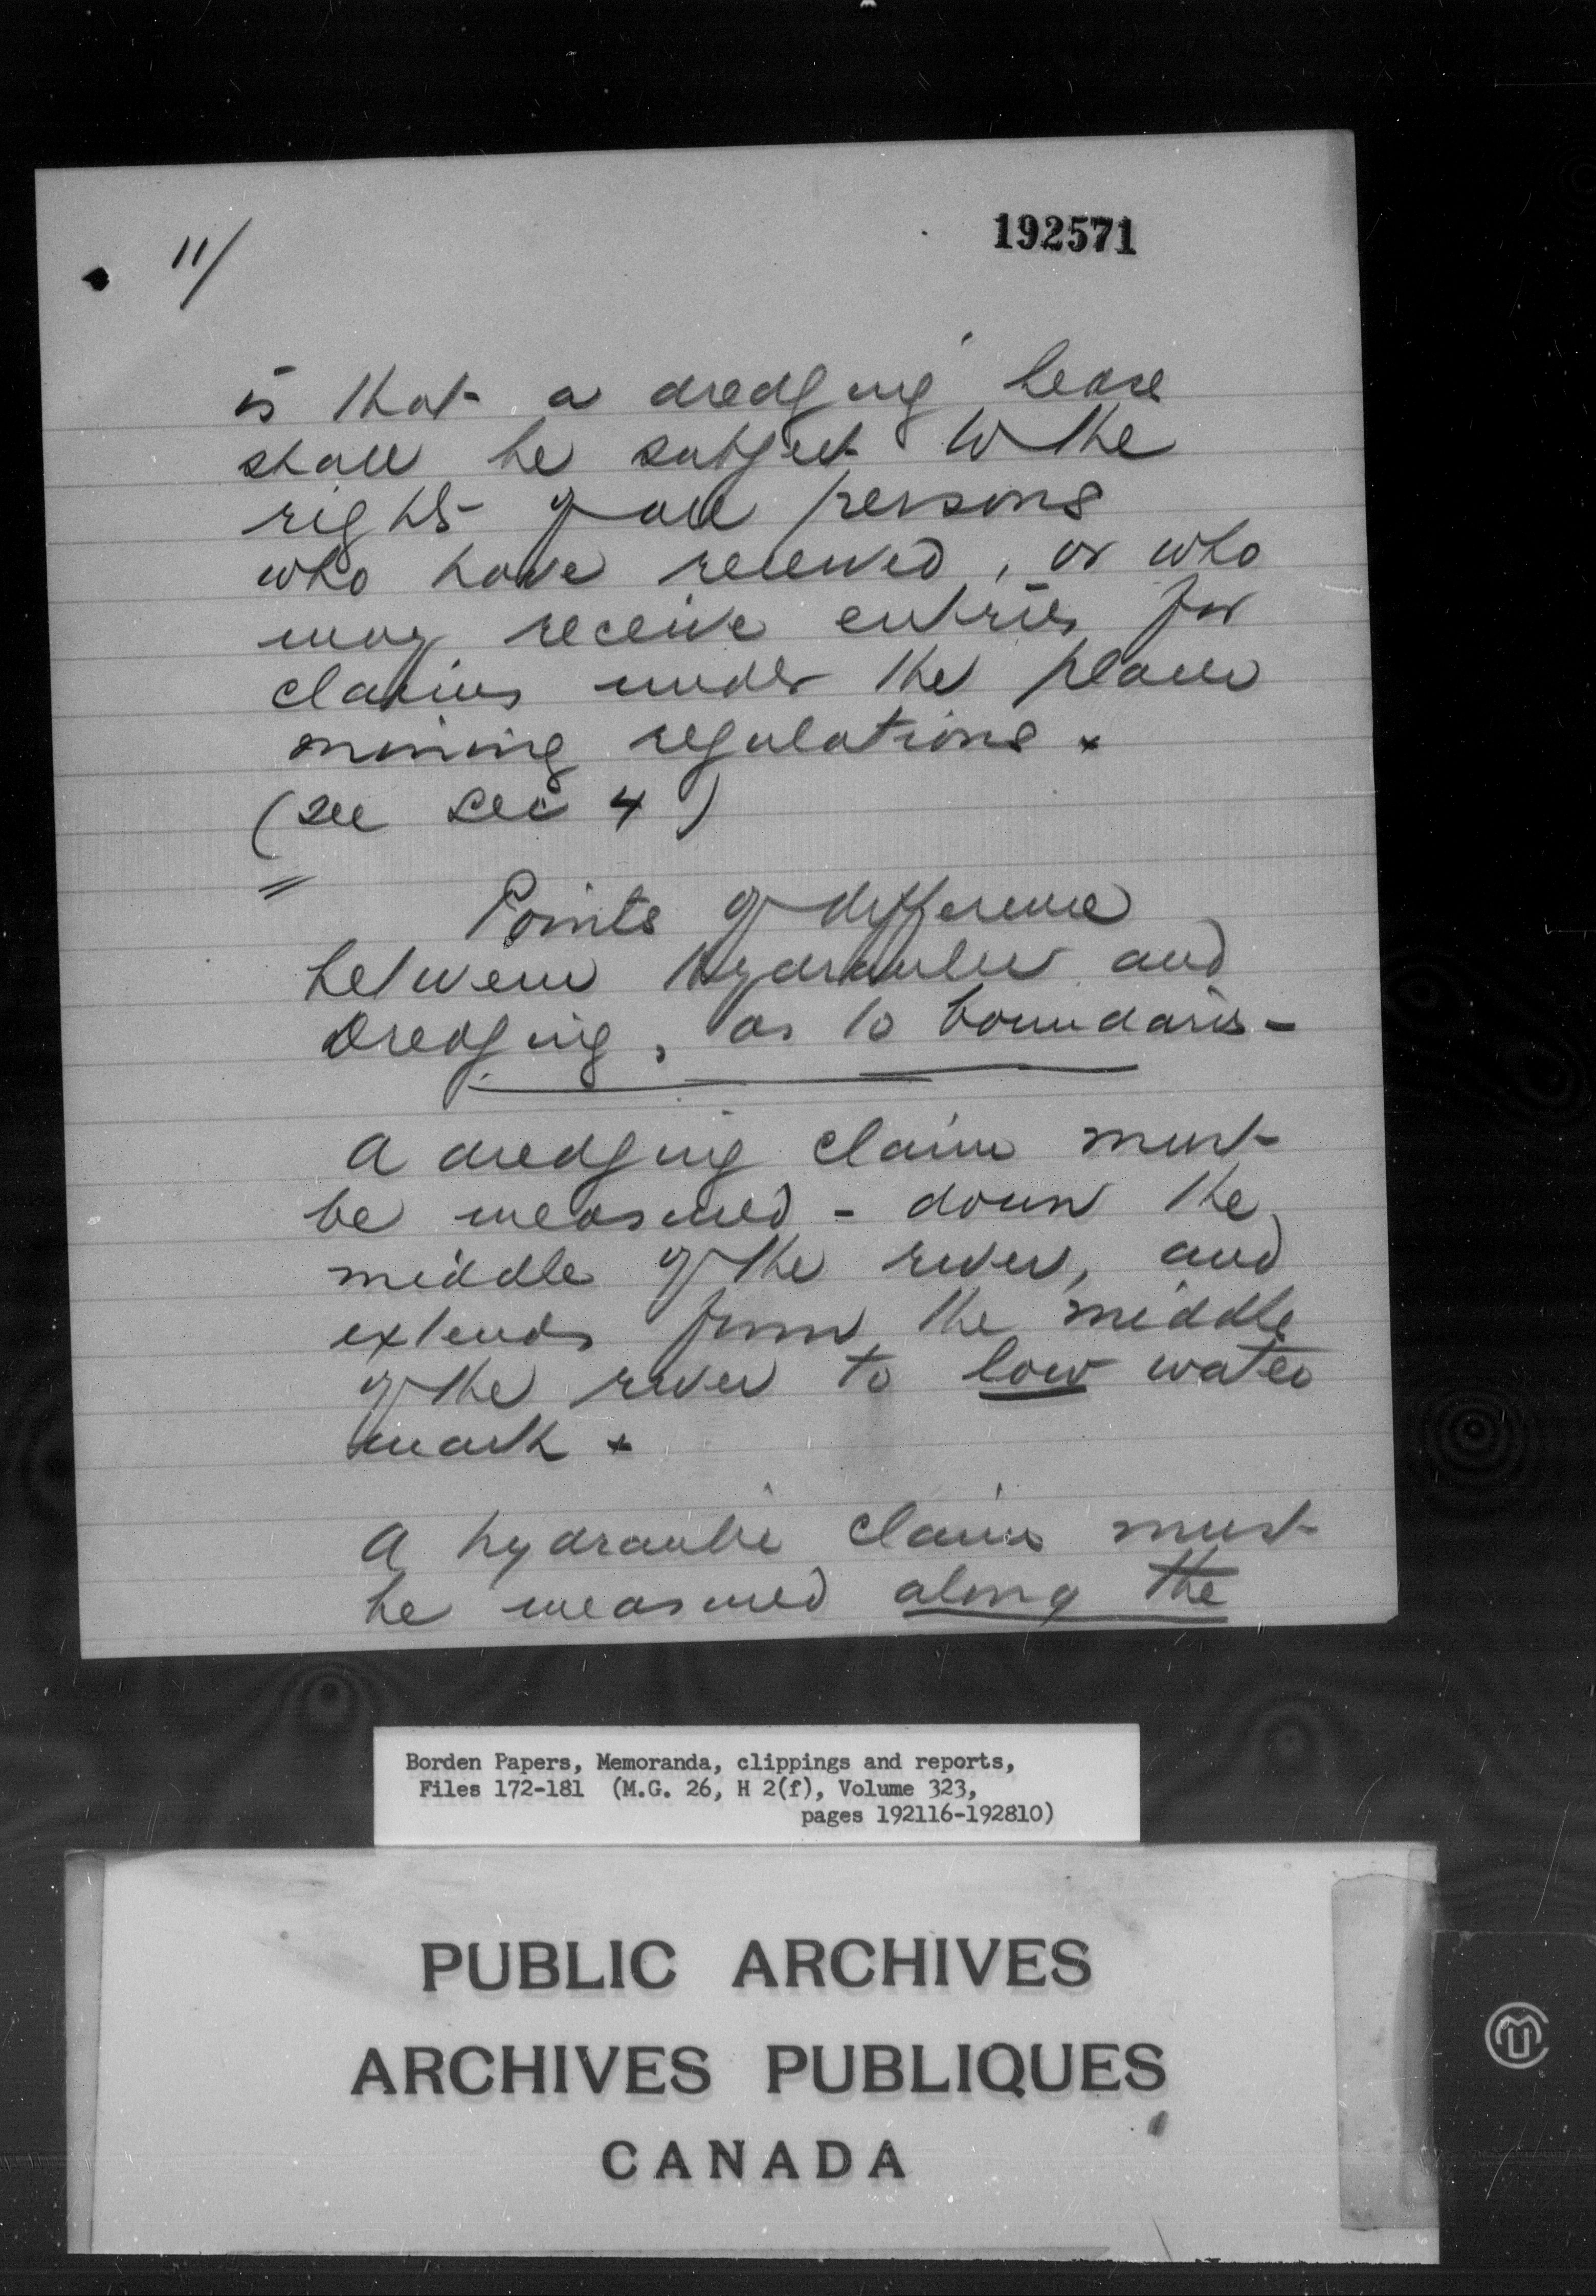 11/
192571
is that a dredging lease
shall be subject to the
rights of all persons
who have received, or who
may receive entries for
claims under the placer
mining regulations.
(see Sec 4)
Points of difference
between Hydraulic and
Dredging, as to boundaries -
A dredging claim must
be measured - down the
middle of the river, and
extends from the middle
of the river to low water
mark.
A hydraulic claim must
be measured along the
Borden Papers, Memoranda, clippings and reports,
Files 172-181 (M.G. 26, H 2(f), Volume 323,
pages 192116-192810)
PUBLIC ARCHIVES
ARCHIVES PUBLIQUES
CANADA